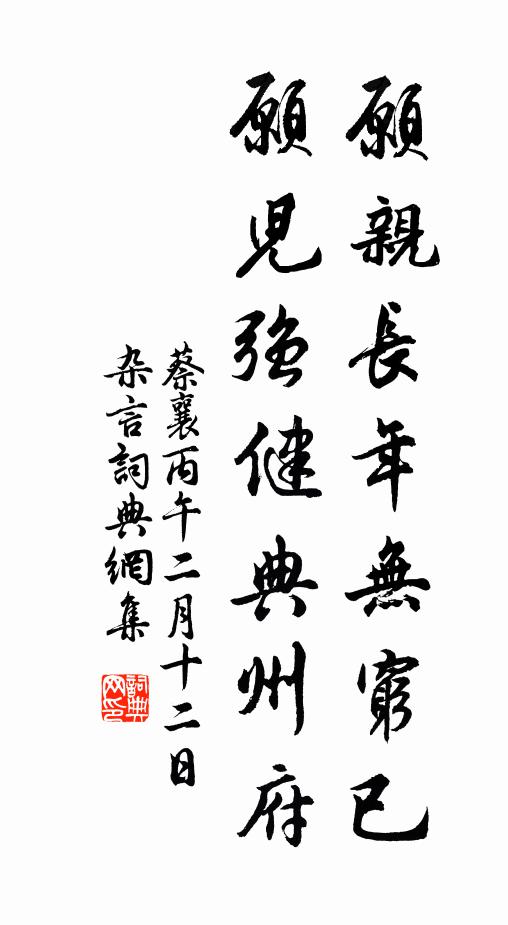 願親長年無窮已
願児強健典州府
蔡襄丙午二月十二日
杂言詞典網集
詞典网印